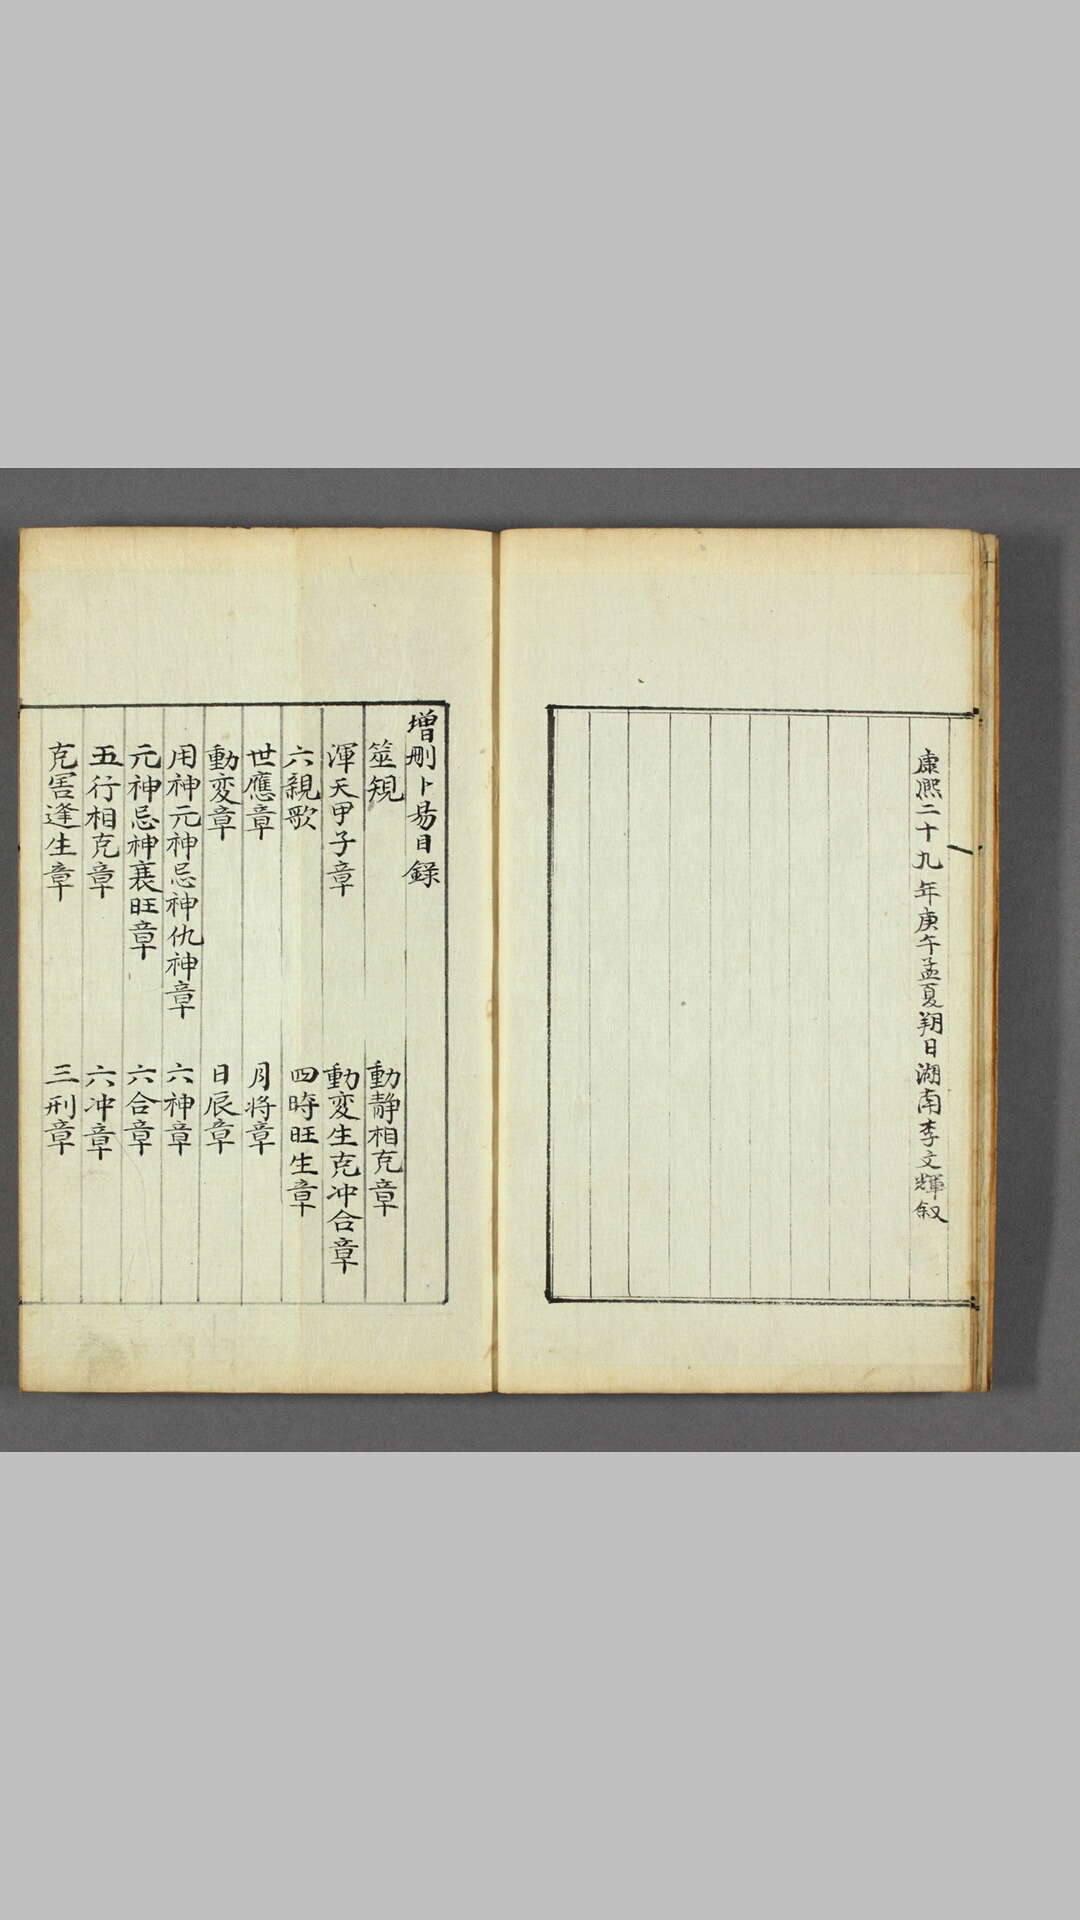 康熙二十九年庚午孟夏朔日湖南李文輝叙
增刪卜易目錄
筮規
動靜相克章
渾天甲子章
動変生克冲合章
六親歌
四時旺生章
世應章
月将章
動変章
日辰章
用神元神忌神仇神章
六神章
元神忌神衰旺章
六合章
五行相克章
六冲章
克害逢生章
三刑章